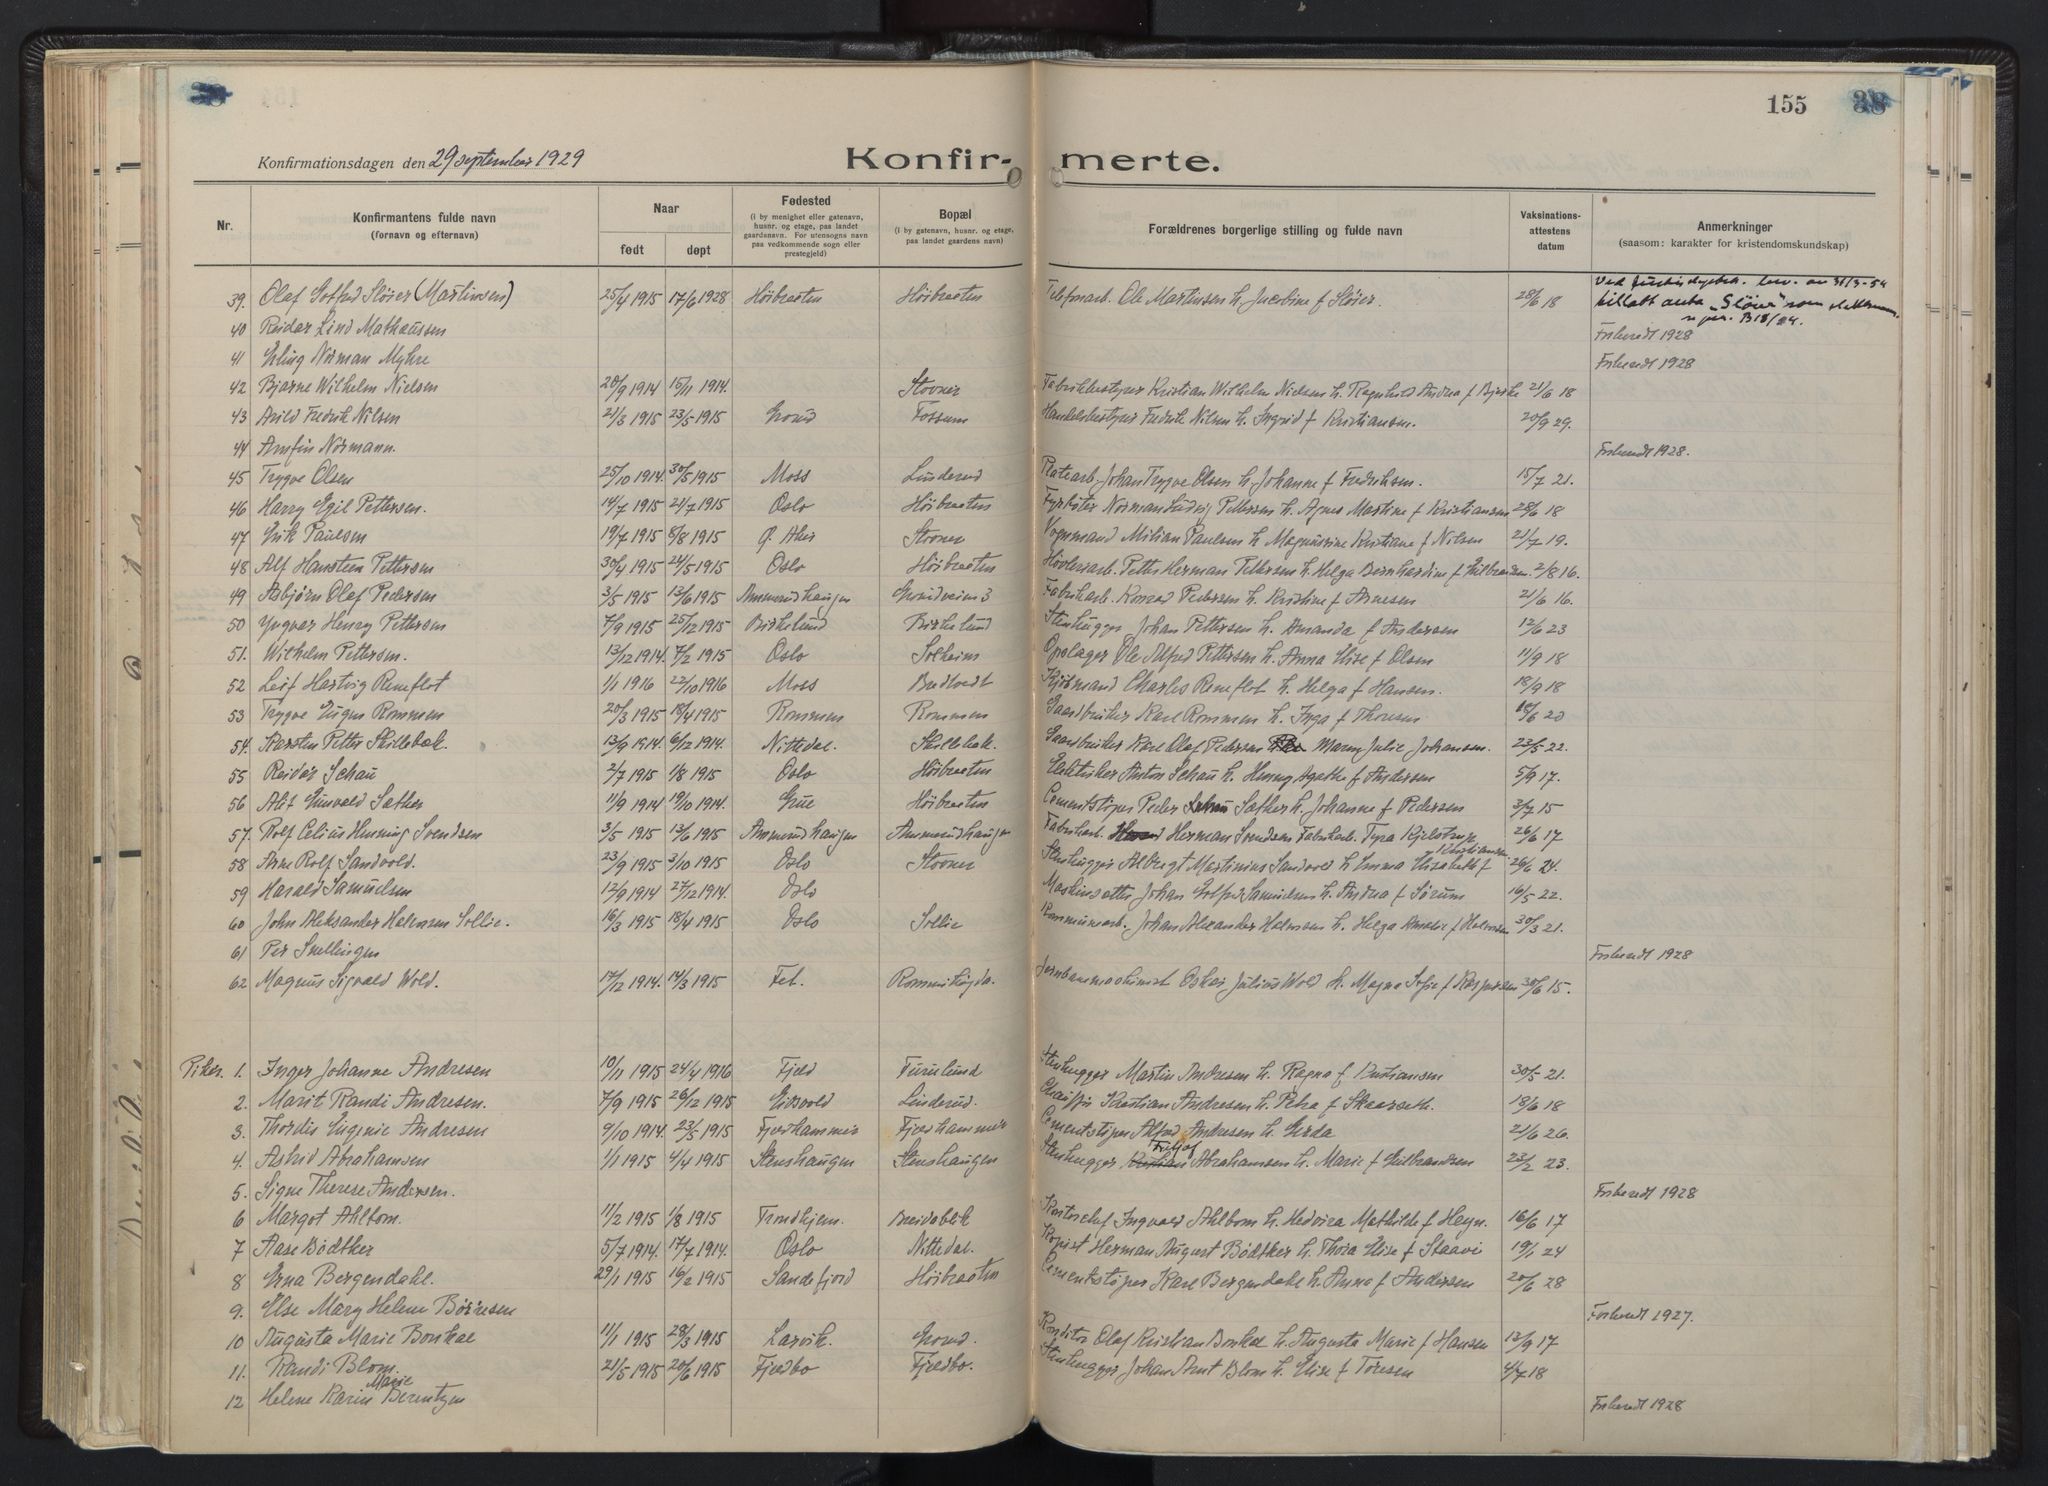 155 38
Konfirmationsdagen den 29 september 1929
Konfir- merte.
Nr. Konfirmantens fulde navn (fornavn og efternavn) Naar født døpt Fødested (i by menighet eller gatenavn, husnr. og etage, paa landet gaardsnavn. For utensogns navn paa vedkommende sogn eller prestegjeld) Bopæl (i by gatenavn, husnr. og etage, paa landet gaardens navn) Forældrenes borgerlige stilling og fulde navn Vaksinations-attestens datum Anmerkninger (saasom: karakter for kristendomskundskap)
39. Olaf Gotfred Slöier (Martinsen) 25/4 1915 17/6 1928 Höibraaten Höibraaten Telefonarb. Ole Martinsen h. Jacobine f Slöier. 28/6 18 Ved 31/3-54 tillatt anta "Slöier" som
40 Reidar Lind Mathaussen Forberedt 1928
41 Erling Norman Myhre Forberedt 1928
42 Bjarne Wilhelm Nielsen 20/9 1914 15/11 1914. Stovner Fabrikbestyrer Kristian Wilhelm Nielsen h. Ragnhild Andrea f Bjerke 21/6 18
43 Arild Fredrik Nilsen 21/3 1915 23/5 1915 Grorud Fossum Handelsbestyrer Fredrik Nilsen h. Ingrid f Kristiansen. 20/9 29.
44 Arnfin Normann. Forberedt 1928.
45 Trygve Olsen 25/10 1914. 30/5 1915 Moss Linderud Platearb. Johan Trygve Olsen h. Johanne f Fredriksen. 15/7 21.
46 Harry Egil Pettersen. 14/7 1915 21/7 1915 Oslo Höibraaten Fyrböter Norman Ludvig Pettersen h. Agnes Martine f Kristiansen 28/6 18
47 Erik Paulsen 19/7 1915 8/8 1915 Ø. Aker Stovner Vognmand Milian Paulsen h Magnusine Kristiane f Nilsen 21/7 19.
48 Alf Hansteen Pettersen 30/4 1915 24/5 1915 Oslo Höibraaten Hövleriarb. Petter Herman Pettersen h. Helga Bernhardine f Gulbrandsen. 2/8 16.
49 Asbjørn Olaf Pedersen 3/5 1915 13/6 1915 Ammerudhaugen Grorudveien 3 Fabrikarb. Konrad Pedersen h. Kristine f Arnesen 21/6 16.
50 Yngvar Henry Pettersen 7/9 1915 25/12 1915 Birkelund Birkelund Stenhugger Johan Pettersen h. Amanda f Andersen 12/6 23
51. Wilhelm Pettersen. 13/12 1914. 7/2 1915 Oslo Solheim Opslager Ole Alfred Pettersen h. Anna Elise f Olsen 11/9 18
52 Leif Hartvig Reneflot 1/1 1916 22/10 1916 Moss Bredtvedt Kjöbmand Charles Reneflot h. Helga f Hansen. 18/9 18
53 Trygve Eugen Rommen 20/3 1915 18/4 1915 Rommen Rommen Gaardbruker Karl Rommen h. Inga f Thoresen 18/6 20
54. Karsten Petter Skillebek. 13/9 1914. 6/12 1914. Nittedal. Skillebek. Gaardbruker Karl Olaf Pedersen Marny Julie Johansen. 23/5 22.
55 Reidar Schau 2/7 1915 1/8 1915 Oslo Höibraaten Elektriker Anton Schau h. Henny Agathe f Andersen 5/9 17.
56 Alif Gunvald Sæther 11/9 1914 19/10 1914. Grue Höibraaten Cementstöper Peder Schau Sæther h. Johanne f Pedersen 3/7 15
57. Rolf Celius Henning Svendsen 3/5 1915 13/6 1915 Ammerudhaugen Ammerudhaugen Fabrikarb. Herman Svendsen Fabrikarb. Tyra Kjelstrup 26/6 17
58 Arne Rolf Sandvold. 23/9 1915 3/10 1915 Oslo Stovner Stenhugger Albregt Martinius Sandvold h Emma Elisabeth f Kristiansen 26/6 24.
59 Harald Samuelsen 12/9 1914 27/12 1914. Oslo Maskinsetter Johan Gotfred Samuelsen h. Andrea f Sörum 16/5 22.
60 John Aleksander Halvorsen Sollie. 16/3 1915 18/4 1915 Oslo Sollie Kommunearb. Johan Alexander Halvorsen h. Helga Amalie f Halvorsen 30/3 21.
61 Per Snellingen Forberedt 1928
62 Magnus Sigvald Wold. 17/12 1914. 14/3 1915 Fet. Rommenhögda. Jernbanemaskinist Oskar Julius Wold h. Magna Sofie f Kaspersen 30/6 15.
Piker. 1. Inger Johanne Andresen 10/11 1915 24/4 1916 Fjeld Furulund Stenhugger Martin Andresen h. Ragna f Kristiansen 30/5 21.
2. Marit Randi Andresen. 7/9 1915 26/12 1915 Eidsvold Linderud. Chauffør Kristian Andresen h. Petra f Skaarseth. 18/6 18
3. Thordis Eugenie Andresen 9/10 1914. 23/5 1915 Fjeldhammer Fjeldhammer Cementstöper Alfred Andresen h. Gerda 21/6 26.
4. Astrid Abrahamsen 1/1 1915 4/4 1915 Stenshaugen Stenshaugen Stenhugger Kristian Fritjof Abrahamsen h. Marie f Gulbrandsen 23/2 23.
5. Signe Therese Andersen. Forberedt 1928
6 Margot Ahlbom. 11/2 1915 1/8 1915 Trondhjem. Breidablik Kontorchef Ingvald Ahlbom h. Hedvira Mathilde f Heyn. 16/6 17
7 Aase Bödtker 5/7 1914. 17/7 1914. Oslo Nittedal. Kopist Herman August Bödtker h. Thora Elise f Staavi 19/1 24
8 Erna Bergendahl. 29/1 1915 16/2 1915 Sandefjord Höibraaten Cementstöper Karl Bergendahl h. Anna f Andersen 20/6 28
9. Else Mary Helene Börresen Forberedt 1927.
10 Augusta Marie Bonkal 11/1 1915 28/3 1915 Larvik. Grorud. Konditor Olaf Kristian Bonkal h. Augusta Marie f Hansen 13/9 17
11. Randi Blom. 21/5 1915 20/6 1915 Fjeldbo Fjeldbo. Stenhugger Johan Arnt Blom h. Elise f Toresen 4/7 18
12 Helene Karin Marie Berentzen Forberedt 1928